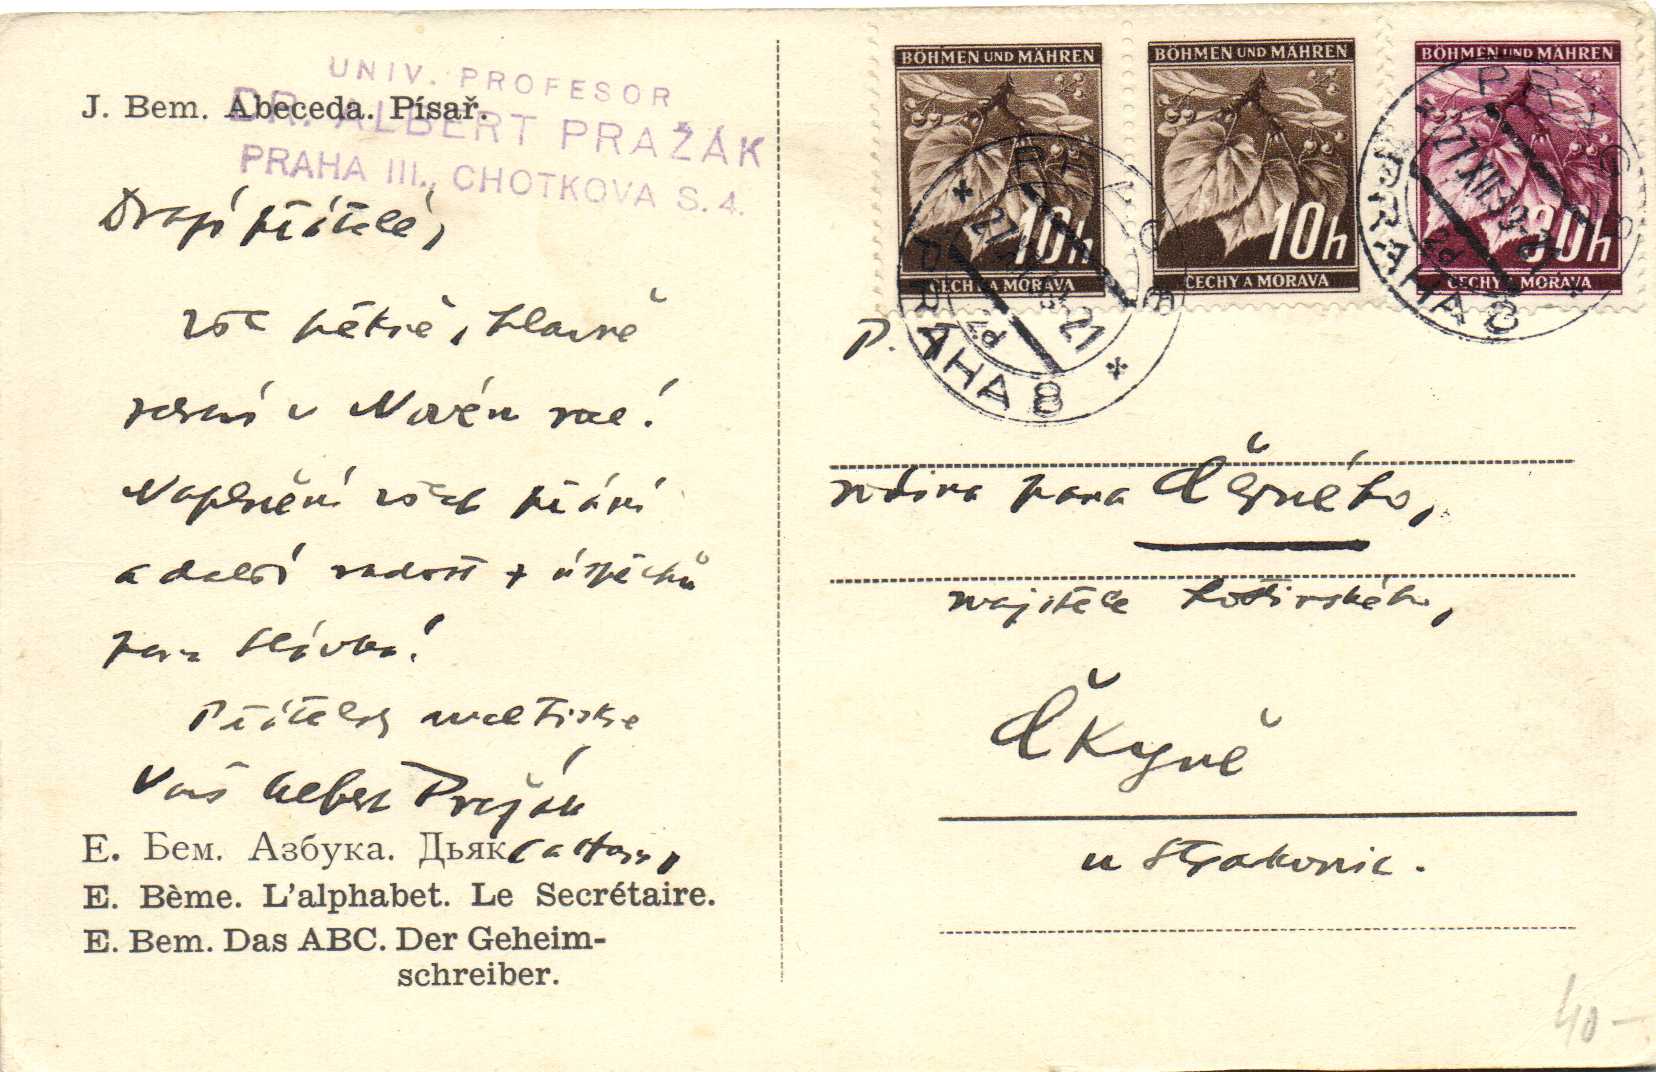 UNIV. PROFESOR
DR. ALBERT PRAŽÁK
PRAHA III., CHOTKOVA S. 4.
J. Bem. Abeceda. Písař.
Drazí přátelé,
vše pékné, hlavně
zdraví v Novém roce!
Naplnění všech přání
a další radost z úspěchů
pana Slávka!
Přátelsky
Váš Albert Pražák
E. Бем. Азбука. Дьяк
E. Bème. L'alphabet. Le Secrétaire.
E. Bem. Das ABC. Der Geheim-
schreiber.
BÖHMEN UND MÄHREN
10h
ČECHY A MORAVA
BÖHMEN UND MÄHREN
10h
ČECHY A MORAVA
BÖHMEN UND MÄHREN
30h
ČECHY A MORAVA
PRAG 8
27.XII.39-21
PRAHA 8
PRAG 8
27.XII.39-21
PRAHA 8
P. T.
rodina pana Černého,
majitele hostinského,
Čkyně
u Strakonic.
40-